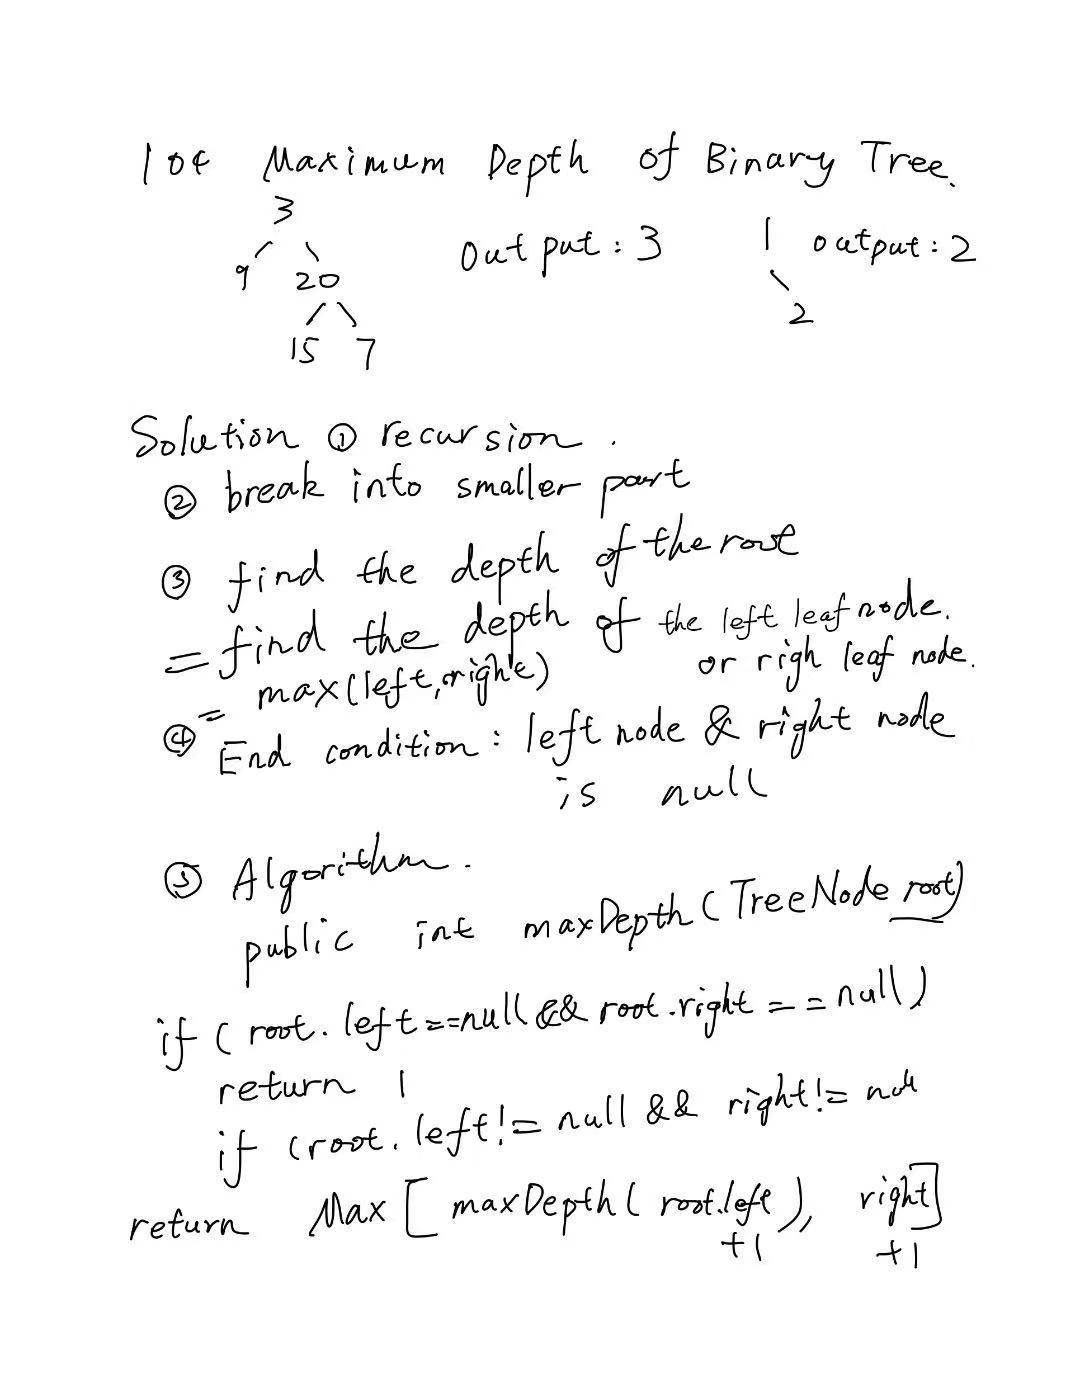 104 Maximum Depth of Binary Tree.
3
9 20
15 7
Output: 3
1
2
output: 2
Solution ① recursion.
② break into smaller part
③ find the depth of the root
= find the depth of the left leaf node.
or righ leaf node.
= max(left, right)
④ End condition: left node & right node
is null
⑤ Algorithm.
public int maxDepth(TreeNode root)
if (root.left==null && root.right == null)
return 1
if (root.left!= null && right!= null
return Max [maxDepth(root.left), right]
+1 +1